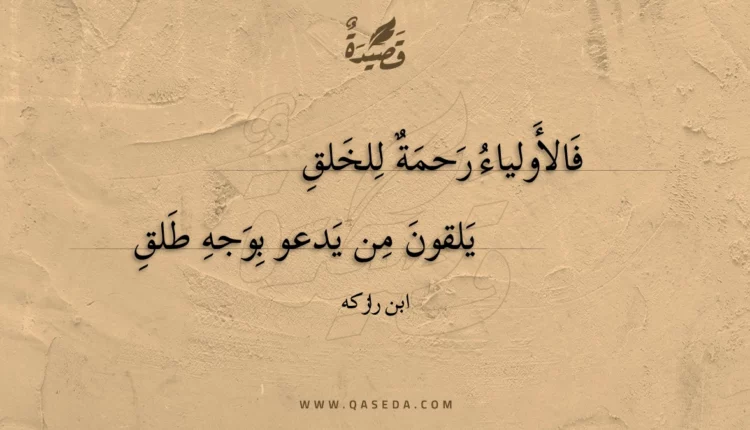 قَصِيْدَةٌ
فَالأَولياءُ رَحمَةٌ لِلخَلقِ
يَلقونَ مِن يَدعو بِوَجهِ طَلقِ
ابن رازكه
WWW.QASEDA.COM